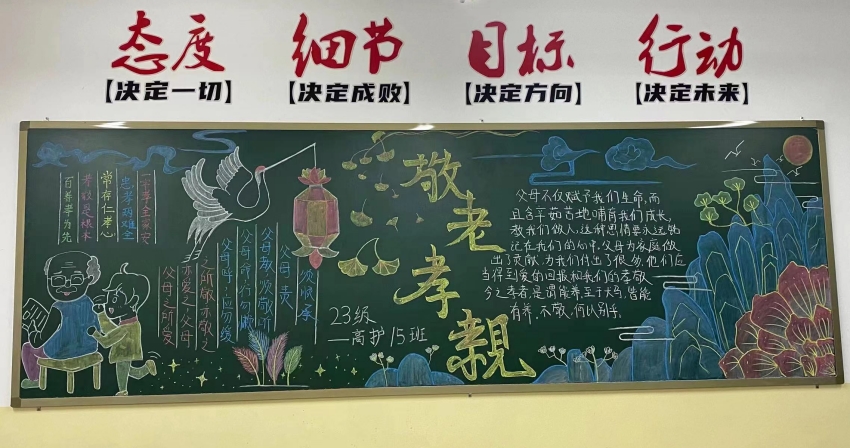 态度 细节 目标 行动
【决定一切】 【决定成败】 【决定方向】 【决定未来】
敬老孝亲
一字孝全家安
忠孝两难全
常存仁孝心
孝敬是根本
百善孝为先
父母责 须顺承
父母教 须敬听
父母命 行勿懒
父母呼 应勿缓
之所敬亦敬之
亦爱之,父母
父母之所爱
23级
—高护15班
父母不仅赋予我们生命,而
且含辛茹苦地哺育我们成长,
教我们做人,这种恩情要永远铭
记在我们的心中,父母为家庭做
出了贡献,为我们付出了很多,他们应
当得到爱的回报和我们的孝敬
今之孝者,是谓能养,至于犬马,皆能
有养,不敬,何以别乎。